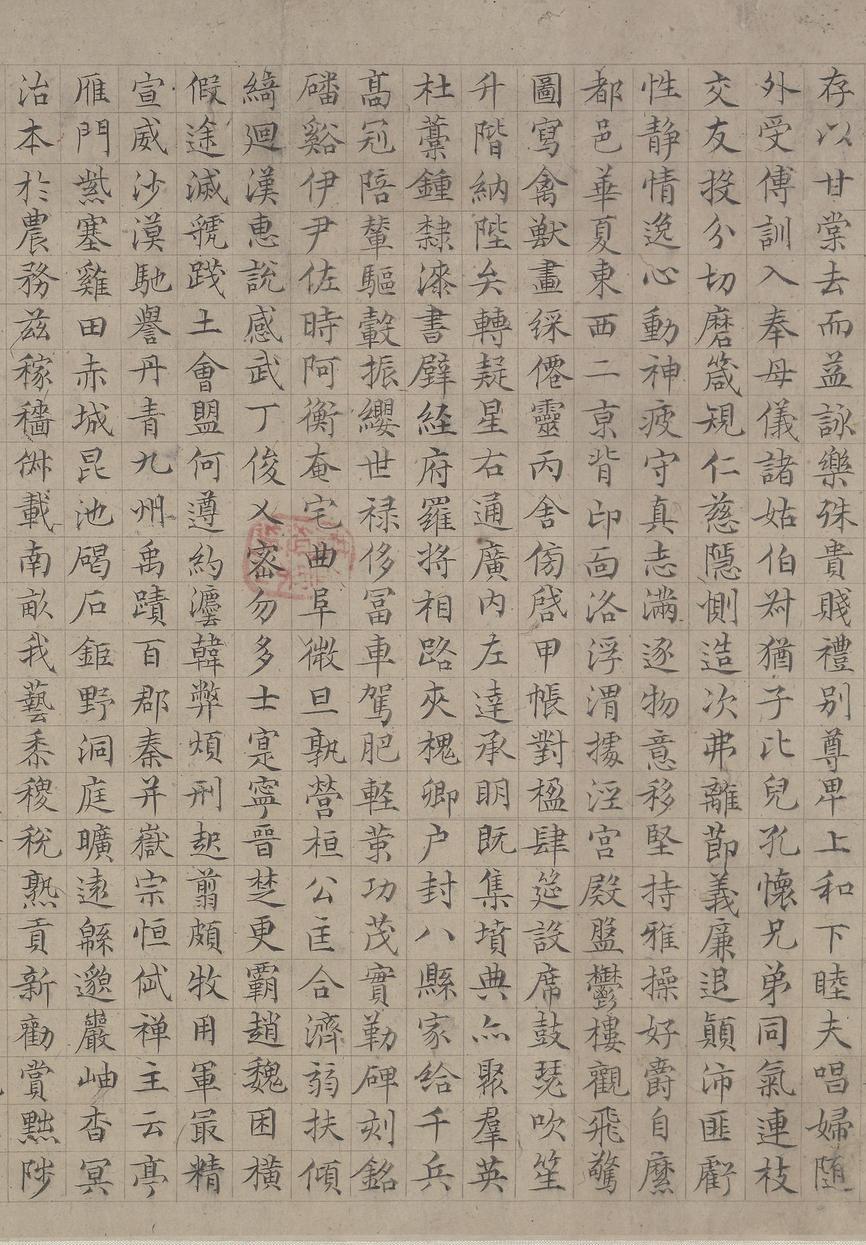 存以甘棠去而益詠樂殊貴賤禮别尊卑上和下睦夫唱婦随
外受傅訓入奉母儀諸姑伯叔猶子比兒孔懷兄弟同氣連枝
交友投分切磨箴規仁慈隠惻造次弗離節義廉退顛沛匪虧
性静情逸心動神疲守真志滿逐物意移堅持雅操好爵自縻
都邑華夏東西二京背邙面洛浮渭據涇宫殿盤鬱樓觀飛驚
圖寫禽獸畫綵僊靈丙舍傍啓甲帳對楹肆筵設席鼓瑟吹笙
升階納陛矣轉疑星右通廣内左達承明既集墳典亦聚羣英
杜藁鍾隸漆書壁経府羅将相路夾槐卿户封八縣家給千兵
髙冠陪輦驅轂振纓世禄侈冨車駕肥軽策功茂實勒碑刻銘
磻谿伊尹佐時阿衡奄宅曲阜微旦孰營桓公匡合濟弱扶傾
綺廻漢惠說感武丁俊乂密勿多士寔寧晉楚更霸趙魏困横
假途滅虢踐土會盟何遵約灋韓弊煩刑起翦頗牧用軍最精
宣威沙漠馳譽丹青九州禹蹟百郡秦并嶽宗恒岱禅主云亭
雁門紫塞雞田赤城昆池碣石鉅野洞庭曠逺緜邈巖岫杳冥
治本於農務兹稼穡俶載南畝我藝黍稷稅熟貢新勸賞黜陟